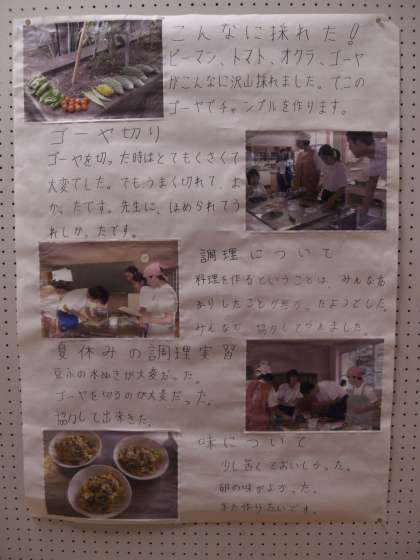 こんなに採れた!
ピーマン、トマト、オクラ、ゴーヤ
がこんなに沢山採れました。でこの
ゴーヤでチャンプルを作ります。
ゴーヤ切り
ゴーヤを切った時はとてもくさくて
大変でした。でもうまく切れて、よ
かったです。先生に、ほめられてう
れしかったです。
調理について
料理を作るということは、みんなあ
まりしたことが無かったようでした。
みんなで、協力して
夏休みの調理実習
豆ふの水ぬきが大変だった。
ゴーヤを切るのが大変だった。
協力して出来きた。
味について
少し苦くておいしかった。
卵の味がよかった。
また作りたいです。